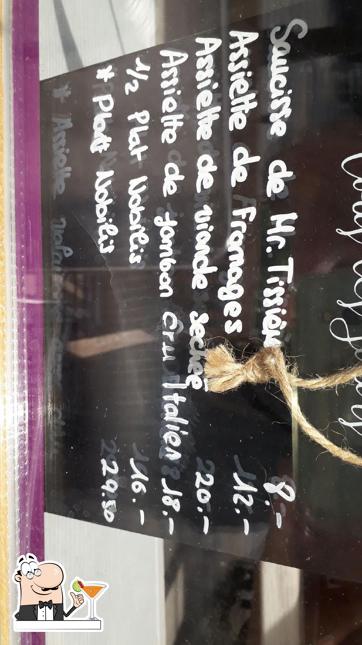 Saucisse de Mr. Tissièr 8.-
Assiette de Fromages 12.-
Assiette de viande sechée 20.-
Assiette de jambon cru Italien 18.-
1/2 Plat Nobilis 16.-
* Platt Nobilis 29.50
* Assiette